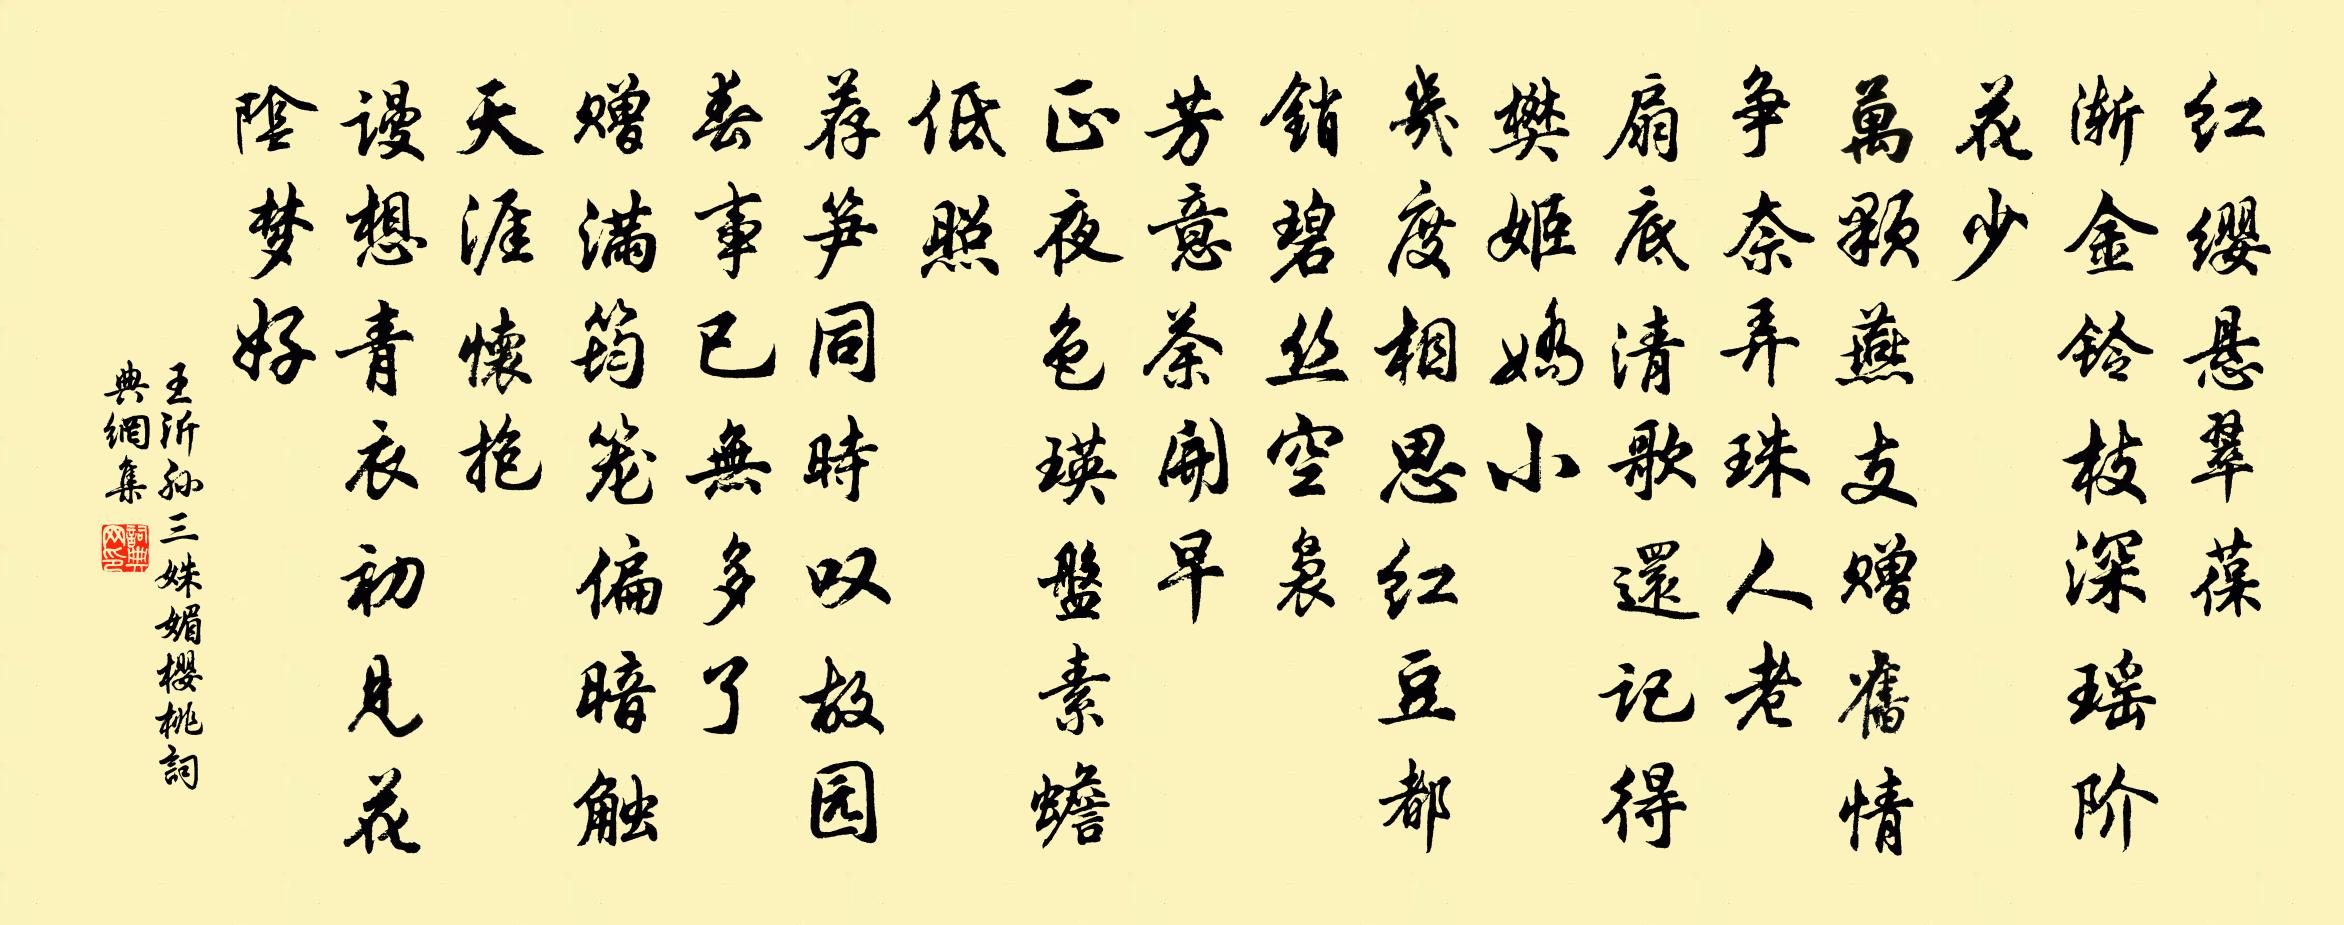 红缨悬翠葆
渐金铃枝深瑶阶
花少
萬顆燕支赠舊情
争奈弄珠人老
扇底清歌還记得
樊姬嬌小
幾度相思红豆都
銷碧丝空袅
芳意荼開早
正夜色瑛盤素蟾
低照
荐笋同時叹故园
春事已無多了
赠满筠笼偏暗触
天涯懷抱
谩想青衣初见花
陰梦好
王沂孙三姝媚櫻桃詞
典網集
詞典
网印